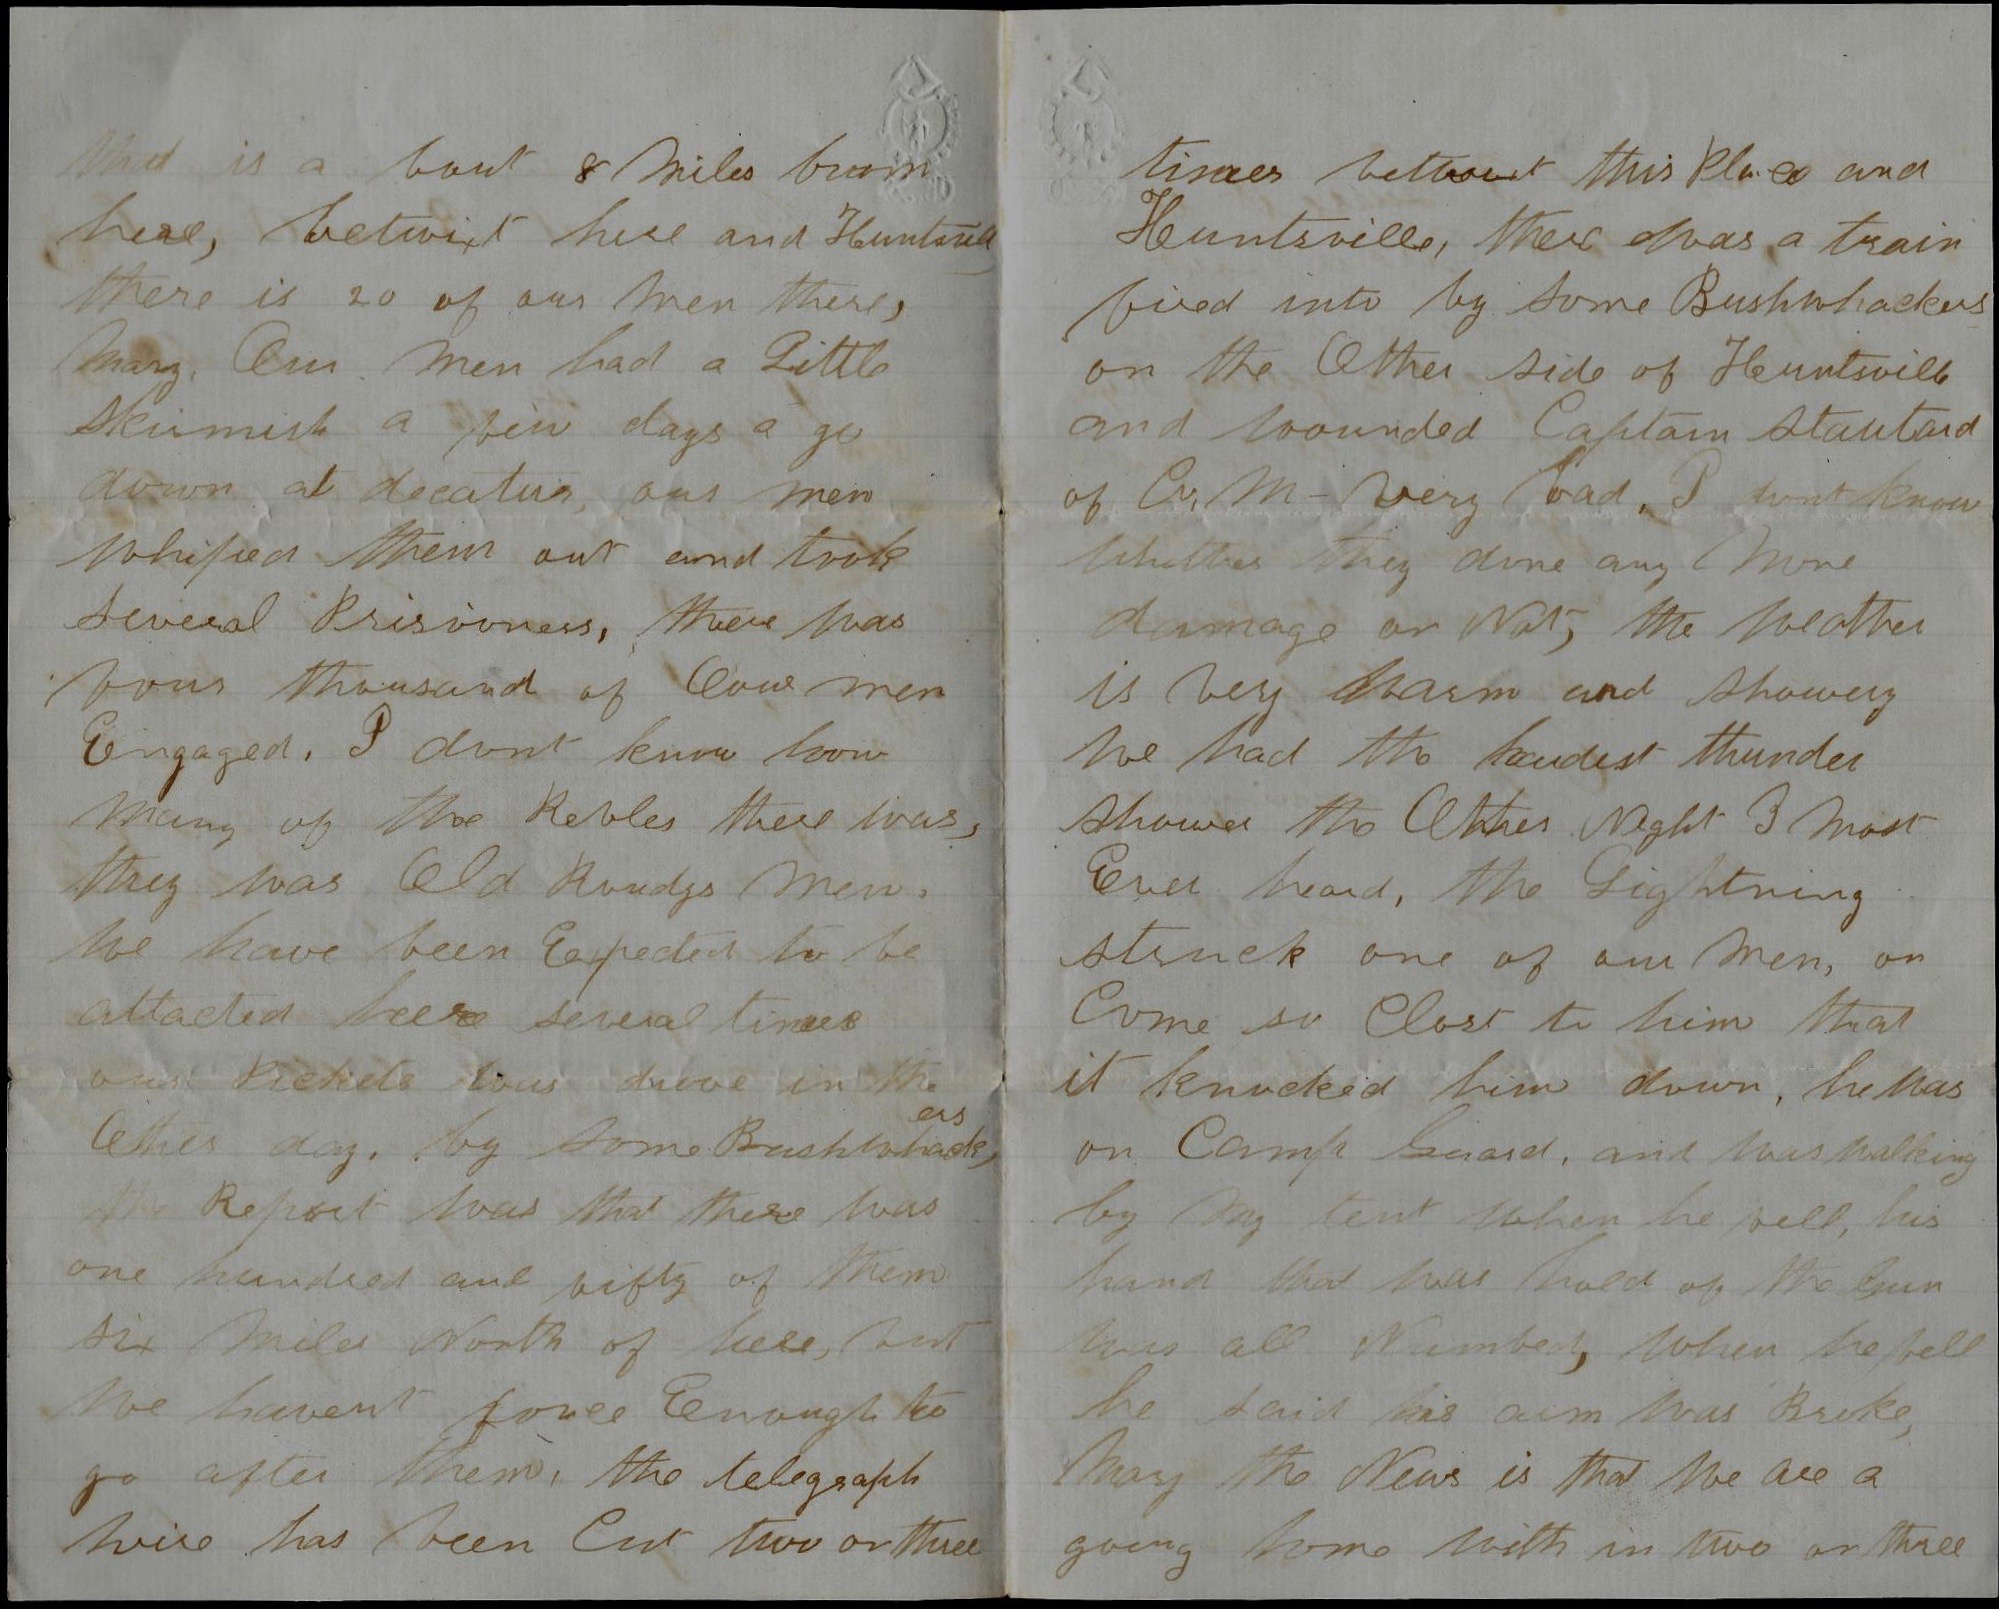 that is a bout 8 Miles from
here, betwixt here and Huntsvill
there is 20 of our Men there,
Mary. Our Men had a Little
Skirmish a few days a go
down at decatur, our men
Whiped them out and took
several Prisioners, there was
four thousand of Our men
Engaged. I dont know how
Many of the Rebles there was,
they was Old Roudys Men.
We have been Expected to be
attacted here several times
our Pickets was drove in the
Other day. by some Bushwhackers,
the Report was that there was
one hundred and fifty of them
six Miles North of here, but
We havent force Enough to
go after them, the telegraph
wire has been Cut two or three
times between this Place and
Huntsville, there was a train
fired into by some Bushwhackers
on the Other side of Huntsville
and wounded Captain
of Co, M - Very bad. I dont know
Whether they done any More
damage or Not, the weather
is very Warm and showery
We had the hardest thunder
shower the Other Night I Most
Ever heard, the Lightning
struck one of our Men, or
Come so Clost to him that
it knocked him down, he was
on Camp Guard. and was walking
by My tent when he fell, his
hand that was hold of the Gun
was all Numbed, When he fell
he said his arm was Broke,
Mary the News is that We are a
going home with in two or three